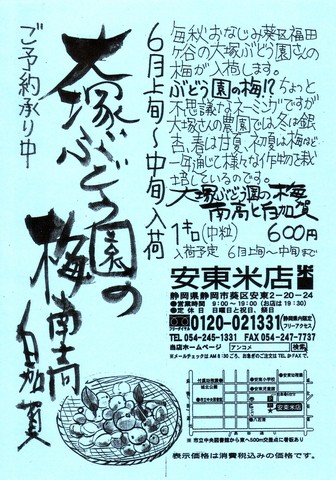 ご予約承り中
大塚ぶどう園の
梅
南高
白加賀
6月上旬〜中旬入荷
毎秋おなじみ葵区福田
ヶ谷の大塚ぶどう園さんの
梅が入荷します。
ぶどう園の梅!? ちょっと
不思議なネーミングですが
大塚さんの農園では冬は銀
杏、春は甘夏、初夏は梅など
一年通じて様々な作物を栽
培しているのです。
大塚ぶどう園の梅
南高と白加賀
1キロ(中粒) 600円
入荷予定 6月上旬〜中旬まで
安東米店
静岡県静岡市葵区安東2-20-24
●営業時間 9:00〜19:00(お店は19:30)
●定休日 日曜日と祝日、祭日
フリーダイヤル 0120-021331
静岡県内限定
フリーアクセス
TEL 054-245-1331 FAX 054-247-7737
当店ホームページ アンコメ 検索
※メールチェックはAM8:30ごろ、お急ぎのご注文はTELかFAXで。
安東米店
※市立中央図書館から東へ500m交差点に看板あり
表示価格は消費税込みの価格です。